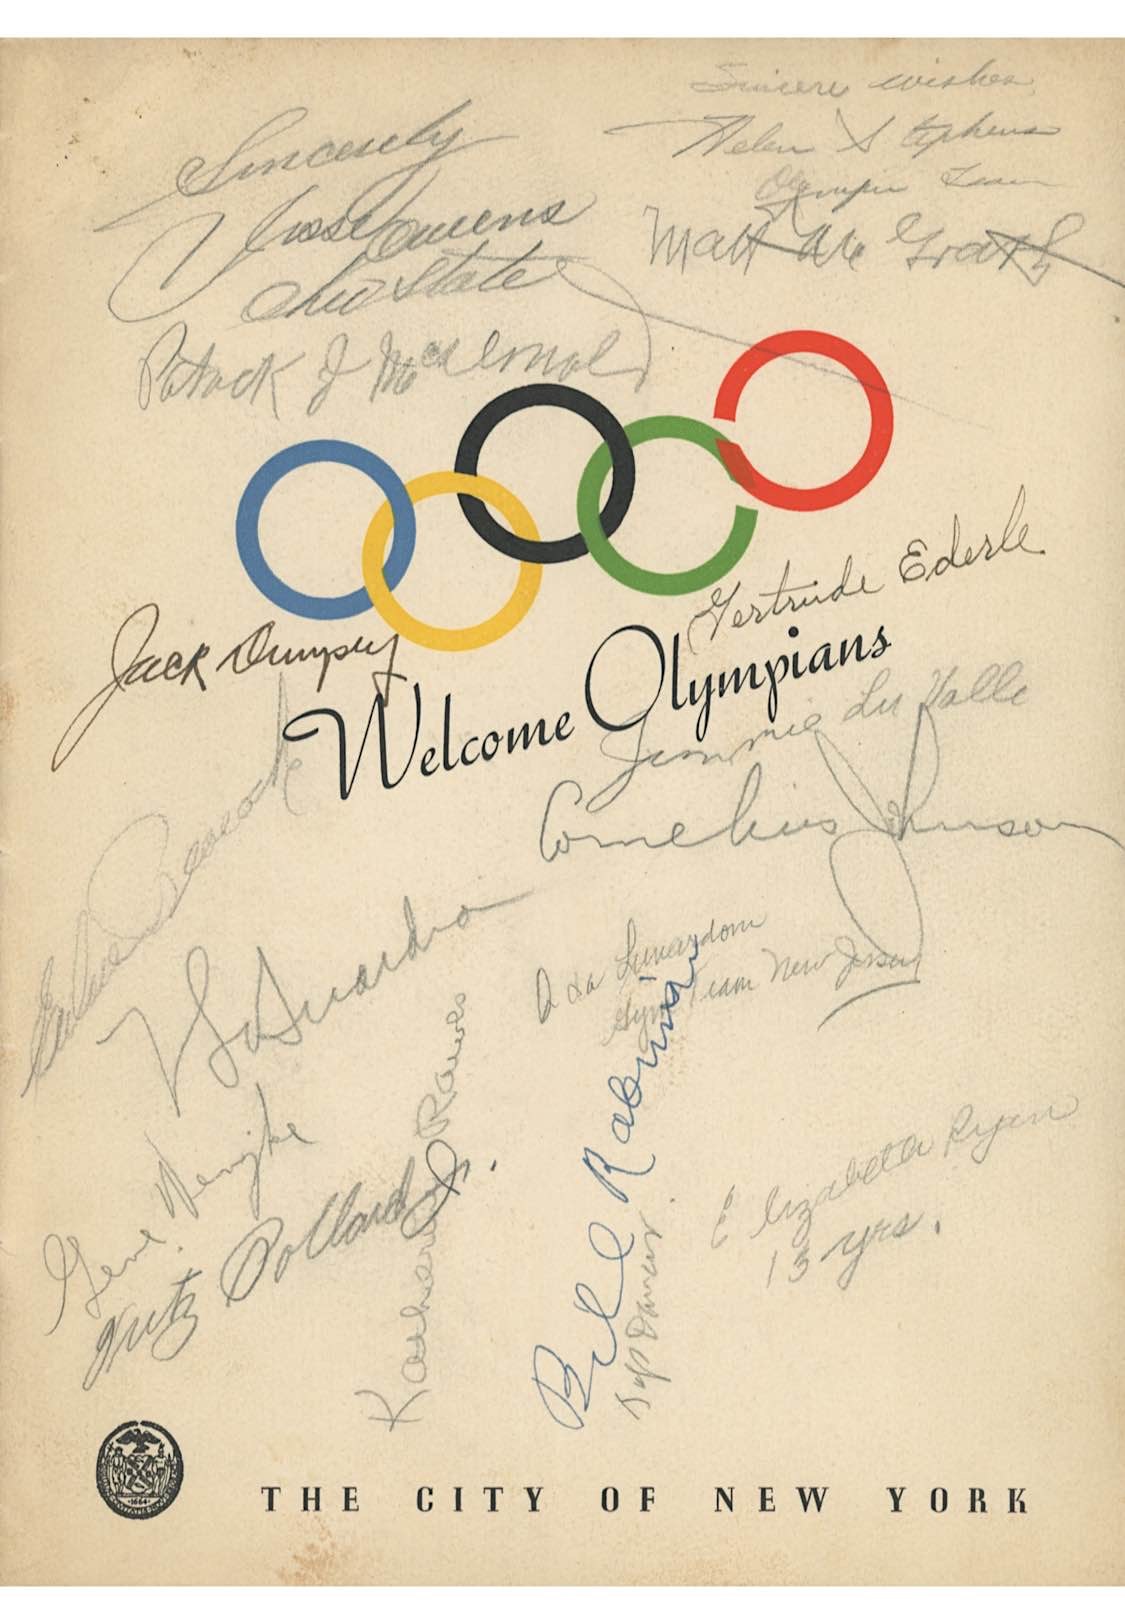 Sincere wishes
Helen Stephens
Olympic Team
Sincerely
Jesse Owens
Ohio State
Matt McGrath
Patrick J McDonald
Gertrude Ederle
Jack Dempsey
Welcome Olympians
Jimmie Lu Valle
Cornelius Johnson
Eulace Peacock
F LaGuardia
Ada Lunardoni
Gym Team New Jersey
Gene Venzke
Fritz Pollard Jr.
Katherine Rawls
Bill Robinson
Elizabeth Ryan
13 yrs.
1664
THE CITY OF NEW YORK